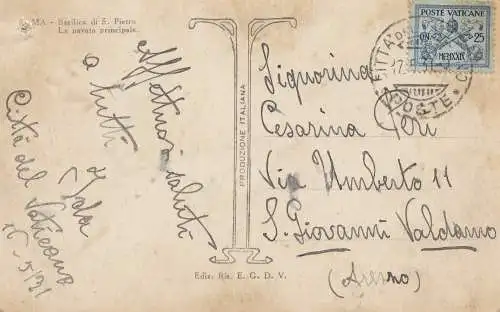 ROMA - Basilica di S. Pietro
La navata principale.
Affettuosi saluti
a tutti
Ida
Città del Vaticano
PRODUZIONE ITALIANA
Ediz. Ris. E. G. D. V.
POSTE VATICANE
CN. 25
MCMXXIX
CITTÀ DEL
POSTE
Signorina
Cesarina
Via Umberto 11
S. Giovanni Valdarno
(Arezzo)